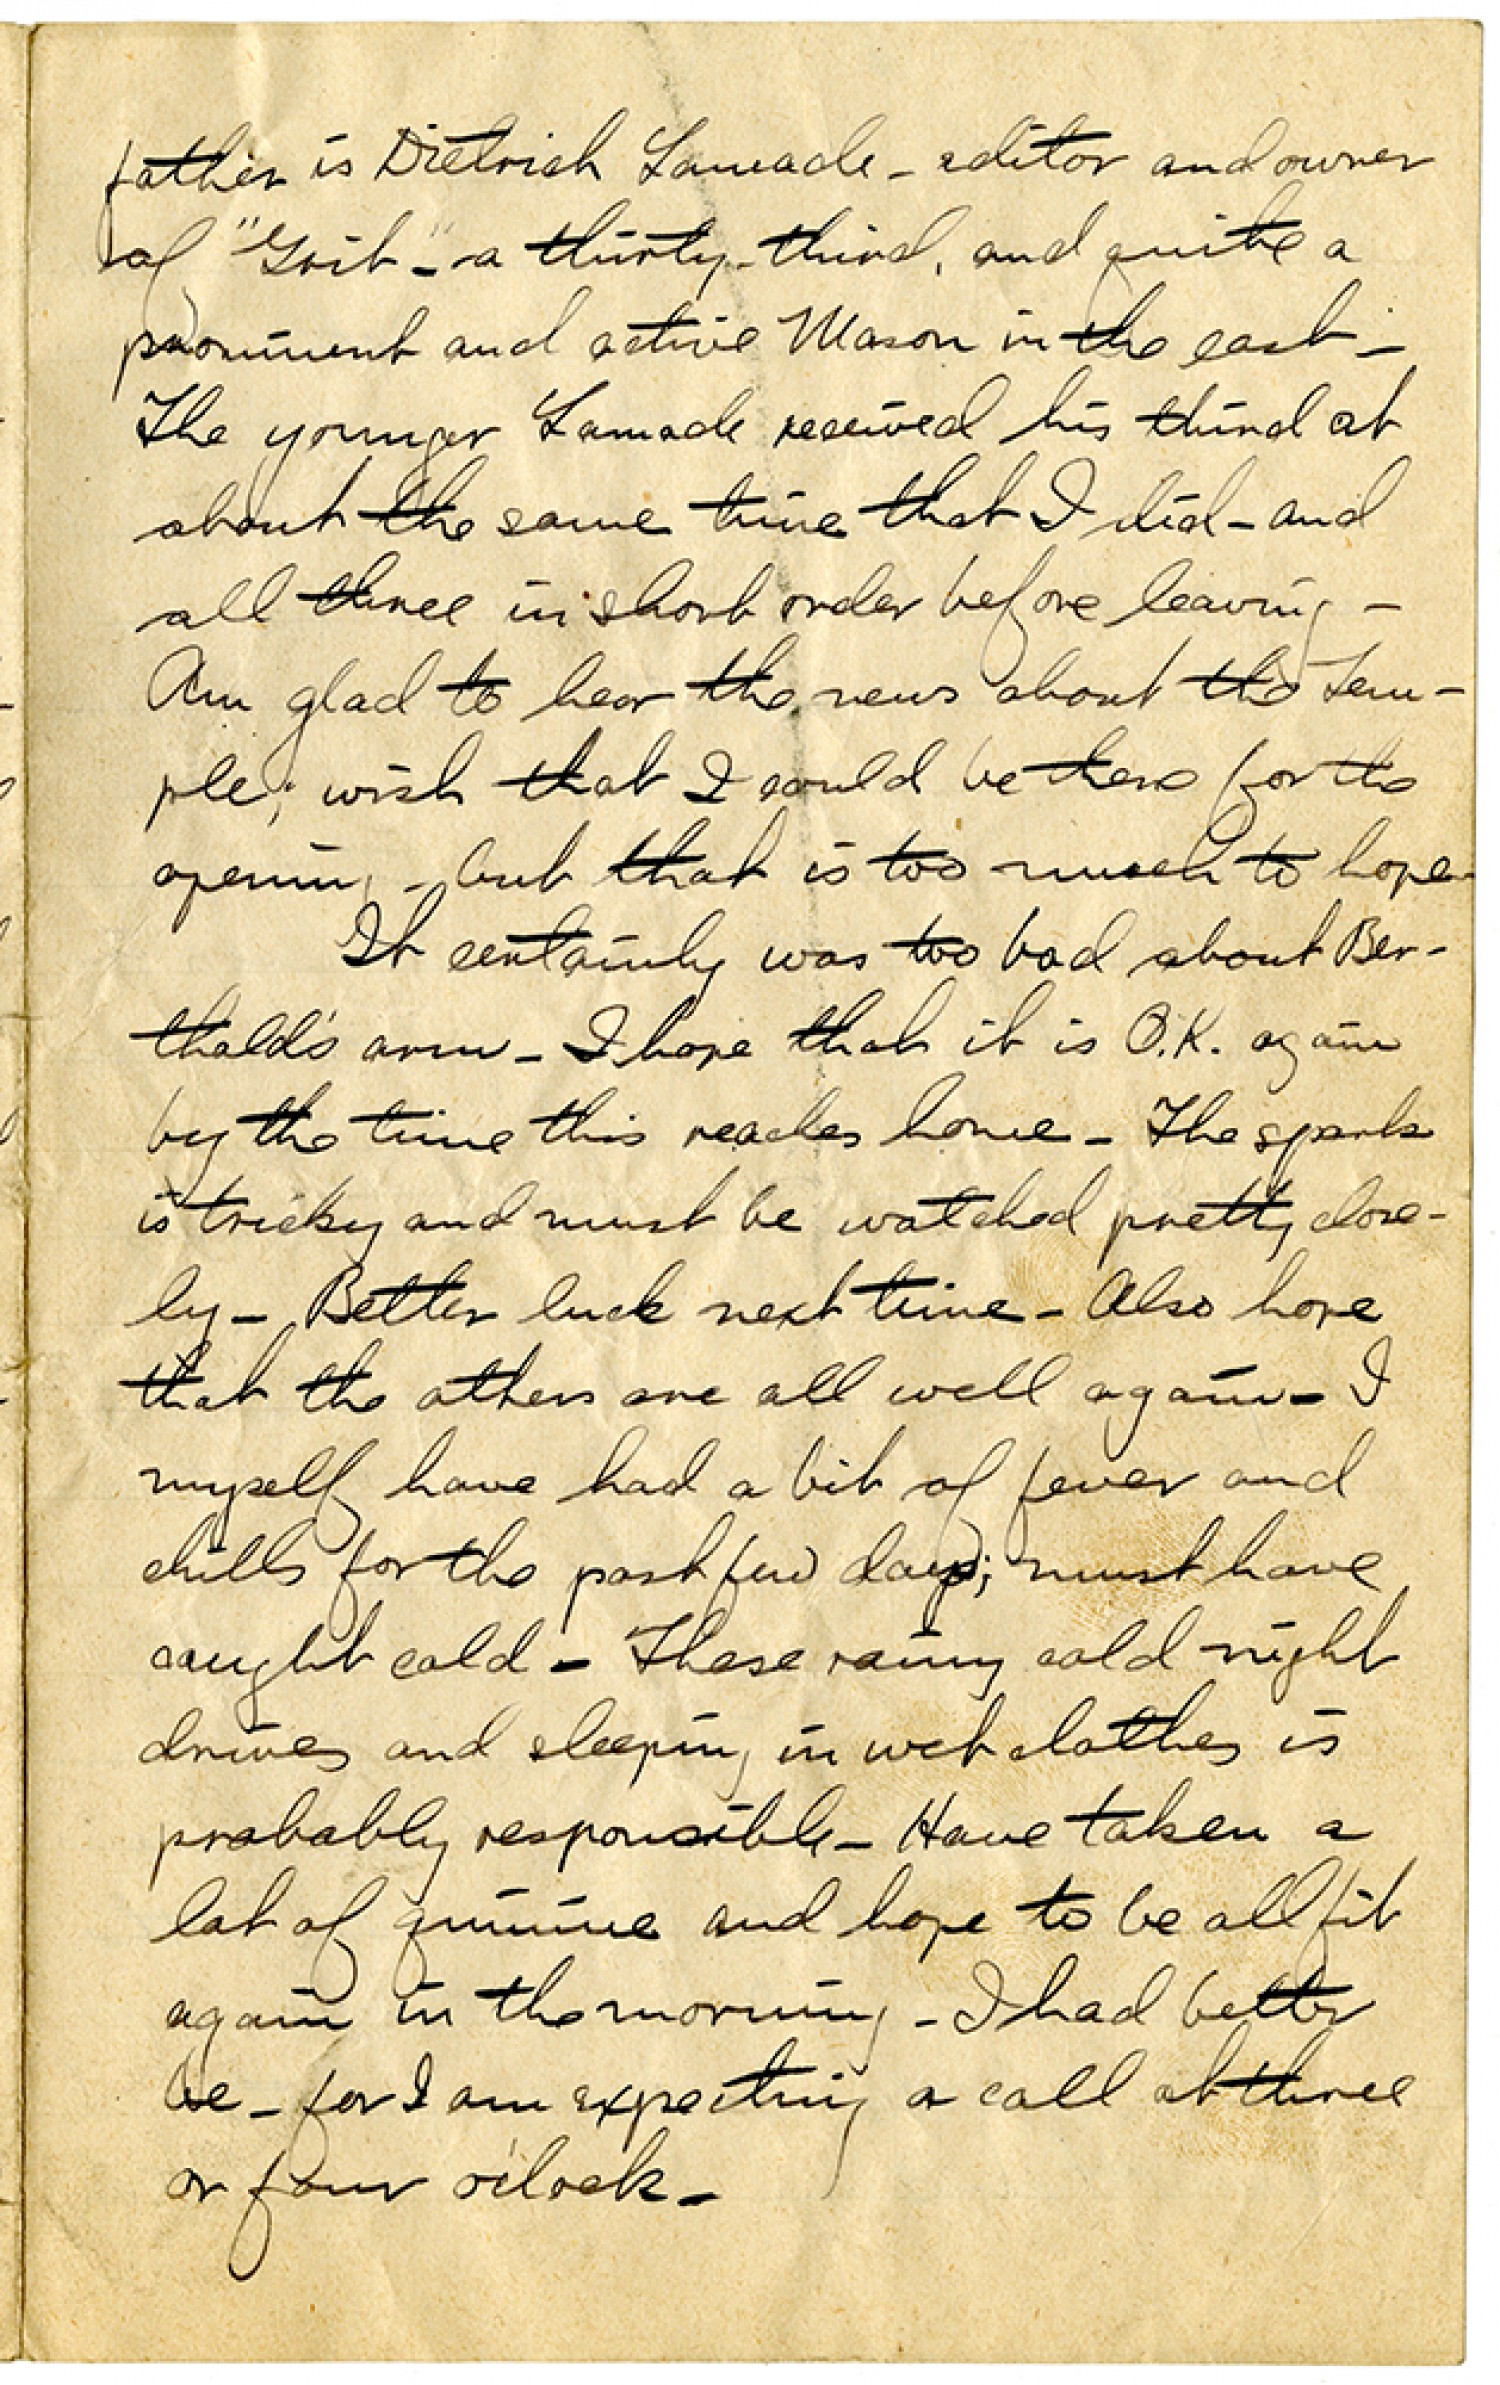 father is Dietrich Lamade - editor and owner
of "Grit" - a thirty-third, and quite a
prominent and active Mason in the east -
The younger Lamade received his third at
about the same time that I did - and
all three in short order before leaving -
Am glad to hear the news about the Tem-
ple; wish that I could be there for the
opening - but that is too much to hope -
It certainly was too bad about Ber-
thold's arm - I hope that it is O.K. again
by the time this reaches home - The spark
is tricky and must be watched pretty close-
ly - Better luck next time - Also hope
that the others are all well again - I
myself have had a bit of fever and
chills for the past few days; must have
caught cold - These rainy cold night
drives and sleeping in wet clothes is
probably responsible - Have taken a
lot of quinine and hope to be all fit
again in the morning - I had better
be - for I am expecting a call at three
or four o'clock -